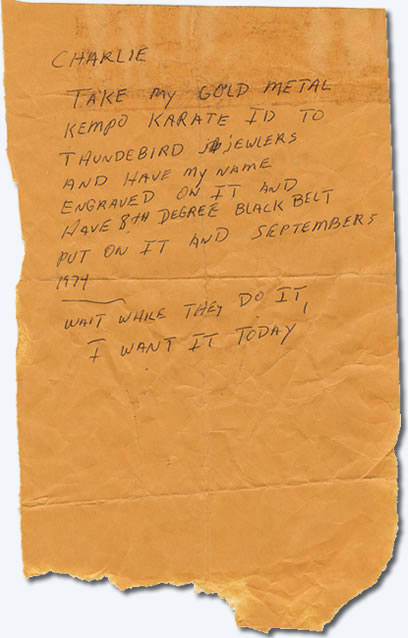 CHARLIE
TAKE my GOLD METAL
KEMPO KARATE ID TO
THUNDEBIRD JEWLERS
AND HAVE my NAME
ENGRAVED ON IT AND
HAVE 8th DEGREE BLACK BELT
PUT ON IT AND SEPTEMBER 5
1974
WAIT WHILE THEY DO IT,
I WANT IT TODAY